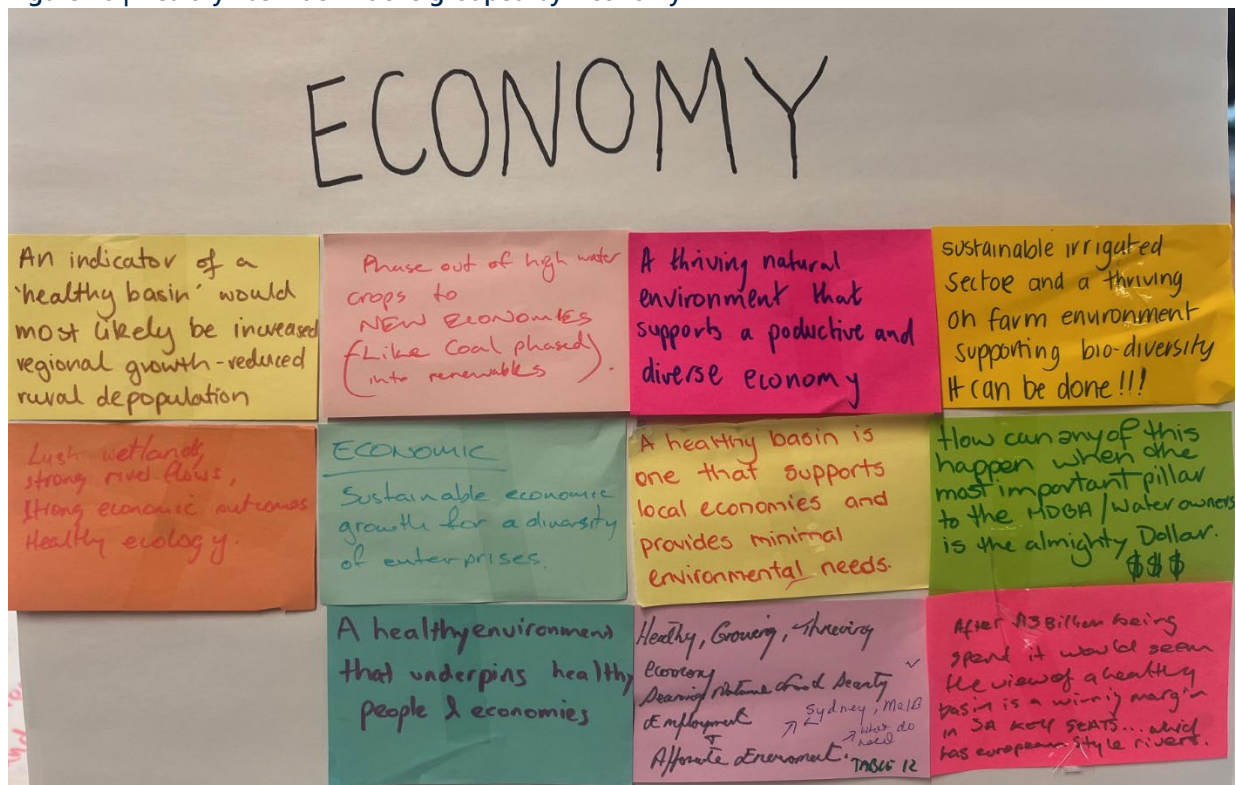 ECONOMY
An indicator of a
'healthy basin' would
most likely be increased
regional growth - reduced
rural depopulation
Phase out of high water
crops to
NEW ECONOMIES
(Like Coal phased
into renewables).
A thriving natural
environment that
supports a poductive and
diverse economy
sustainable irrigated
Sector and a thriving
on farm environment
supporting bio-diversity
It can be done!!!
Lush wetlands,
strong river flows,
strong economic outcomes
Healthy ecology.
ECONOMIC
Sustainable economic
growth for a diversity
of enterprises.
A healthy basin is
one that supports
local economies and
provides minimal
environmental needs.
How can any of this
happen when the
most important pillar
to the MDBA/Water owners
is the almighty Dollar.
$$$
A healthy environment
that underpins healthy
people & economies
Healthy, Growing, Thriving
economy
Employment
Sydney, Melb
what do
need
TABLE 12
After 13 Billion being
spend it would seem
the view of a healthy
basin is a winning margin
in SA KEY SEATS... which
has european style rivers.